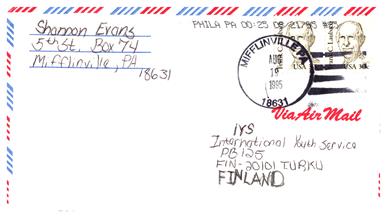 Shannon Evans
5th St. Box 74
Mifflinville, PA
18631
PHILA PA 00:25 08
MIFFLINVILLE PA
AUG
19
1995
18631
USA
Via Air Mail
IYS
International Youth Service
PB 125
FIN-20101 TURKU
FINLAND